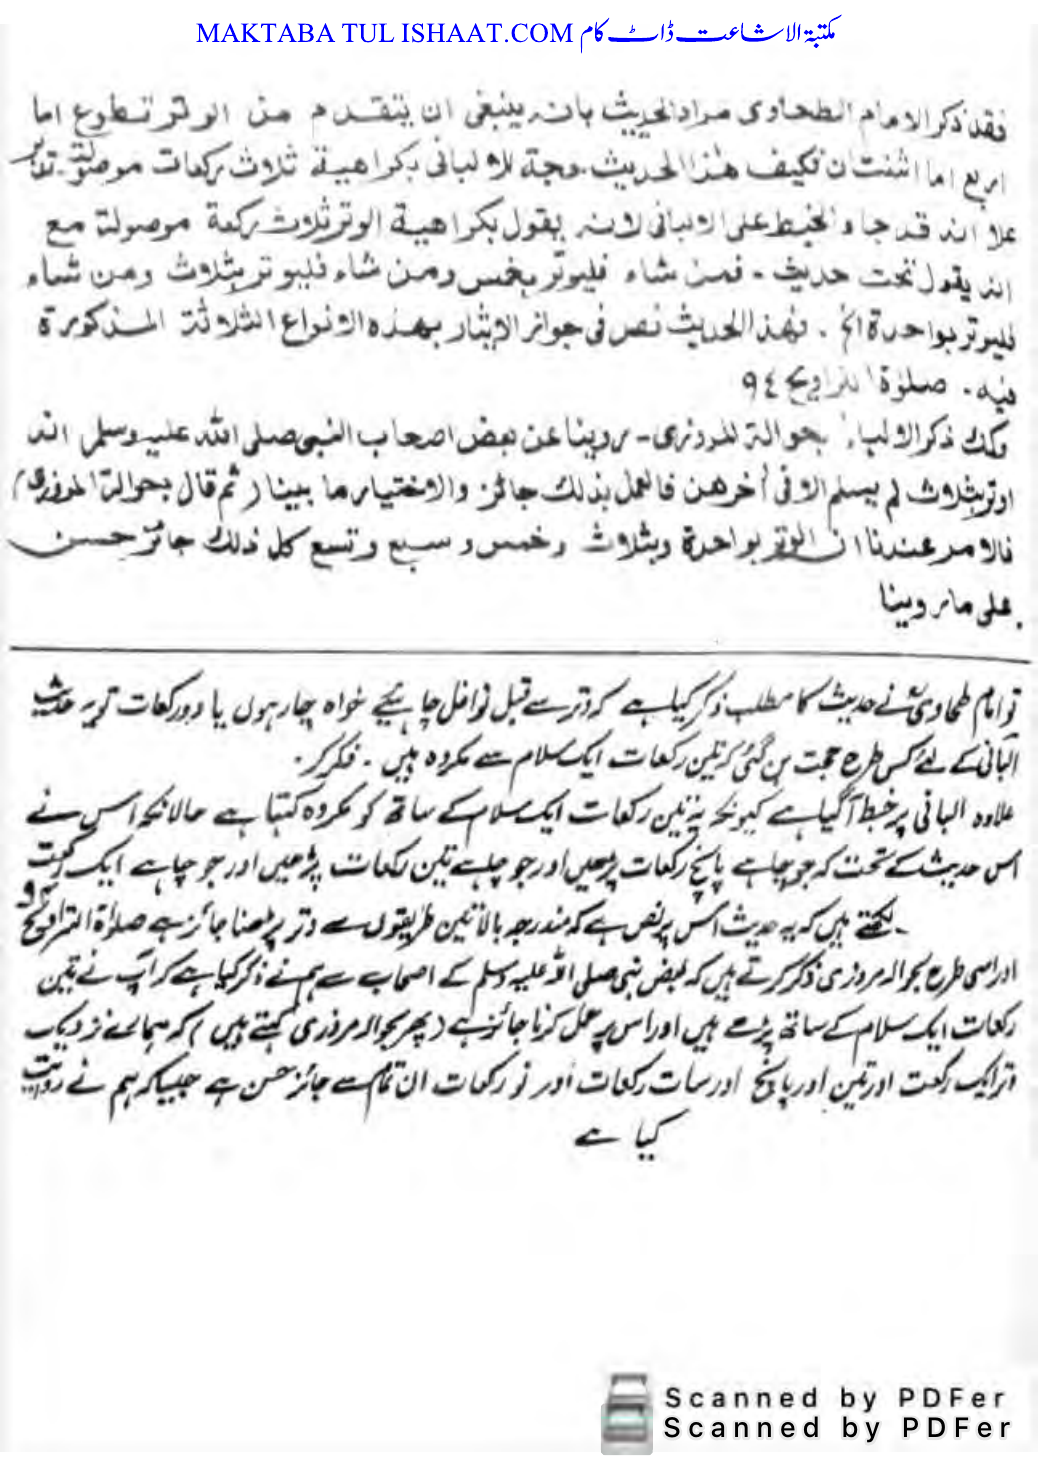 MAKTABA TUL ISHAAT.COM مكتبة الاشاعت ڈاٹ كام
فقد ذكر الامام الطحاوى مراد الحديث بانه ينبغى ان يتقدم من الوتر تطوع اما
اربع اما اثنتان فكيف هذا الحديث حجة للالبانى بكراهية ثلاث ركعات موصولة۔ تفكر
علا انه قد جاء الخبط على الالبانى لانه يقول بكراهية الوتر ثلاث ركعة موصولة مع
انه يقول تحت حديث - فمن شاء فليوتر بخمس ومن شاء فليوتر بثلاث ومن شاء
فليوتر بواحدة الخ . فهذ الحديث نص فى جواز الايتار بهذه الانواع الثلاثة المذكورة
فيه . صلوٰة التراويح ٩٤
وكك ذكر الالبانى بحوالة المروزى - روينا عن بعض اصحاب النبى صلى الله عليه وسلم انه
اوتر بثلاث لم يسلم الا فى اخرهن فالعمل بذلك جائز والاختيار ما بينا ( ثم قال بحوالة المروزى )
فالامر عندنا ان الوتر بواحدة وبثلاث وخمس و سبع وتسع كل ذلك جائز حسن
على ما روينا .
تو امام طحاوی نے حدیث کا مطلب ذکر کیا ہے کہ وتر سے قبل نوافل چاہئیے خواہ چار ہوں یا دو رکعات تو یہ حدیث
البانی کے لئے کس طرح حجت بن گئی کہ تین رکعات ایک سلام سے مکروہ ہیں ۔ فکر کر ۔
علاوہ البانی پر خبط آگیا ہے کیونکہ یہ تین رکعات ایک سلام کے ساتھ کو مکروہ کہتا ہے حالانکہ اس نے
اس حدیث کے تحت کہ جو چاہے پانچ رکعات پڑھیں اور جو چاہے تین رکعات پڑھیں اور جو چاہے ایک رکعت
۔ لکھتے ہیں کہ یہ حدیث اس پر نص ہے کہ مندرجہ بالا تین طریقوں سے وتر پڑھنا جائز ہے صلوٰة التراویح ٩٤
اور اسی طرح بحوالہ مروزی ذکر کرتے ہیں کہ بعض نبی صلی اللہ علیہ وسلم کے اصحاب سے ہم نے ذکر کیا ہے کہ آپ نے تین
رکعات ایک سلام کے ساتھ پڑھے ہیں اور اس پر عمل کرنا جائز ہے ( پھر بحوالہ مروزی کہتے ہیں ) کہ ہمارے نزدیک
وتر ایک رکعت اور تین اور پانچ اور سات رکعات اور نو رکعات ان تمام سے جائز حسن ہے جیسا کہ ہم نے روایت
کیا ہے
Scanned by PDFer
Scanned by PDFer